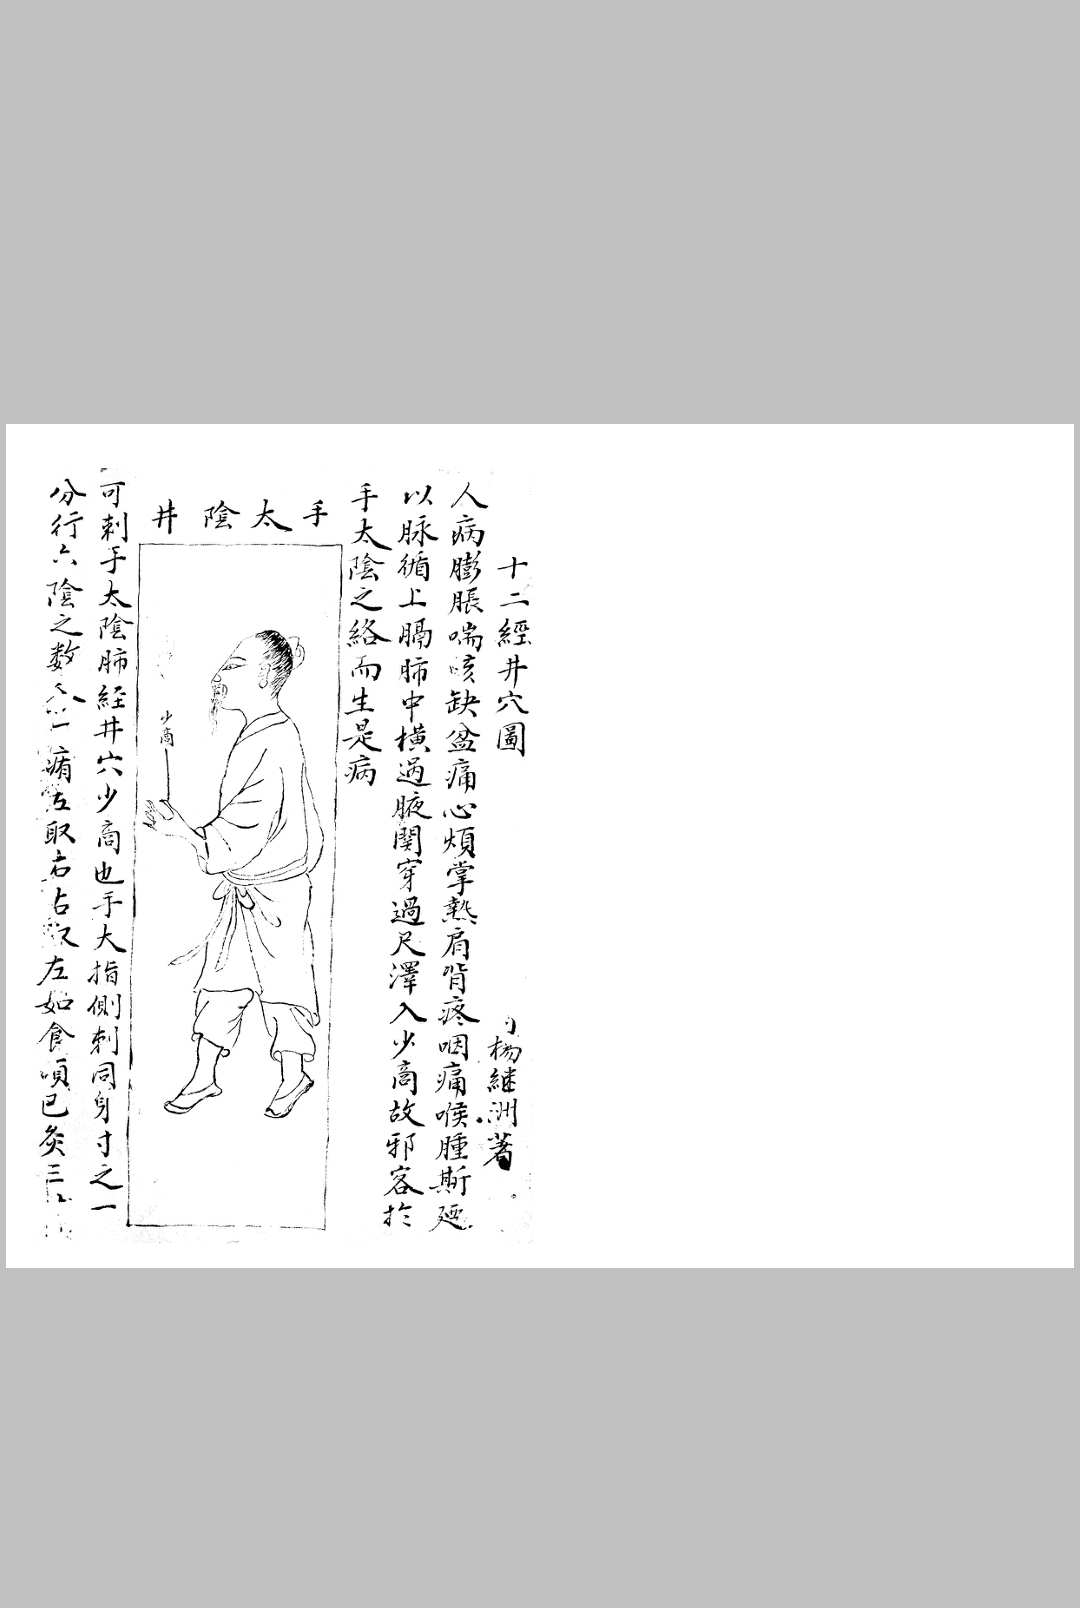 十二經井穴圖
楊繼洲著
人病膨脹喘咳缺盆痛心煩掌熱肩背疼咽痛喉腫斯
以脉循上膈肺中橫過腋關穿過尺澤入少商故邪客於
手太陰之絡而生是病
手太陰井
少商
可刺手太陰肺經井穴少商也手大指側刺同身寸之一
分行六陰之数 一痏左取右右取左如食頃已灸三